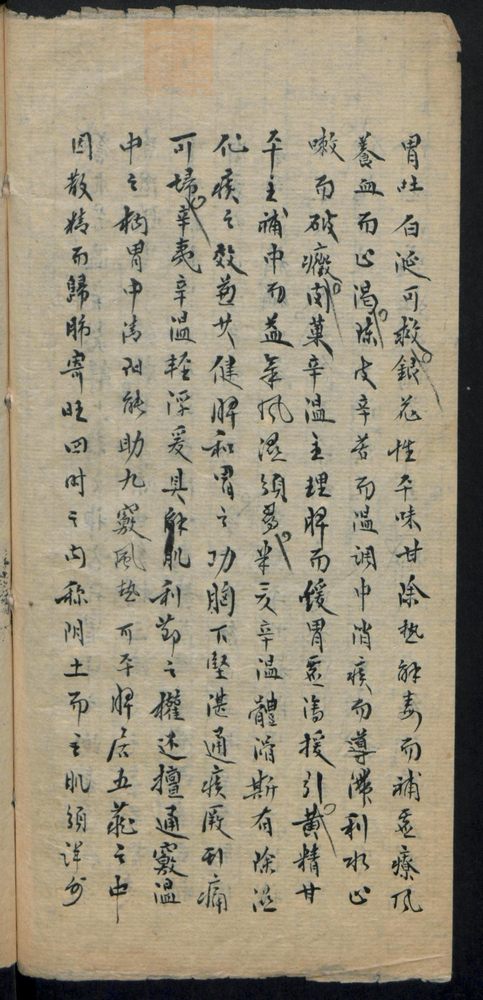 胃吐白涎可救銀花性平味甘除热解毒而補虛療风
養血而止渴陈皮辛苦而温调中消痰而導滞利水止
嗽而破癥肉菓辛温主理脾而缓胃虛瀉援引黄精甘
平主補中而益氣风湿須多半夏辛温體滑斯有除湿
化痰之效兼其健脾和胃之功胸下堅湛通痰厥頭痛
可掃辛夷辛温軽浮爰具解肌利節之權还擅通竅温
中之柄胃中清阳能助九竅风热可平脾居五藏之中
因散精而歸肺寄旺四时之内称阴土而主肌須详分